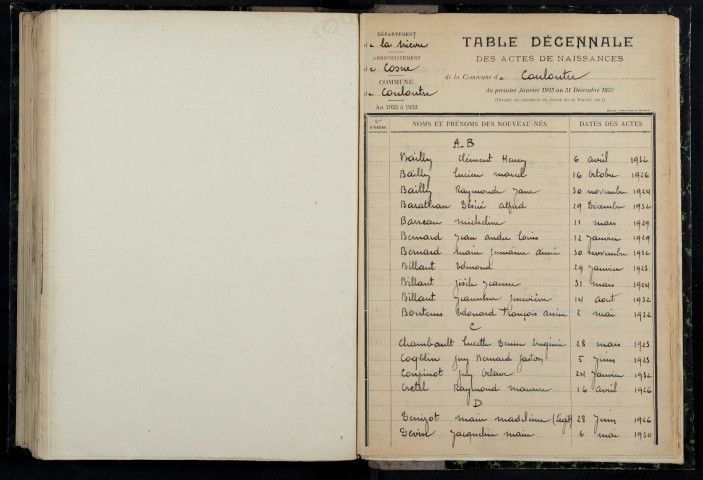 DÉPARTEMENT
de la Nièvre
ARRONDISSEMENT
de Cosne
COMMUNE
de Couloutre
An 1923 à 1932
TABLE DÉCENNALE
DES ACTES DE NAISSANCES
de la Commune de Couloutre
du premier Janvier 1923 au 31 Décembre 1932
N° D'ORDRE
NOMS ET PRÉNOMS DES NOUVEAU-NÉS
DATES DES ACTES
A-B
Bailly Clément Henry 6 avril 1932
Bailly Lucien marcel 16 octobre 1926
Bailly Raymonde Jane 30 novembre 1924
Barathan Désiré alfred 29 Décembre 1932
Barreau micheline 11 mars 1929
Bernard Jean andré Louis 12 janvier 1929
Bernard marie Germaine aimée 30 novembre 1932
Billaut Edmond 29 janvier 1923
Billaut Gisèle Jeanne 31 mars 1924
Billaut Jeannine 14 aout 1932
Edouard François 2 mai 1932
C
Chambault Lucette Denise Eugénie 28 mars 1923
Coquelin Guy Bernard Gaston 5 juin 1923
Coupinot Guy Octave 24 janvier 1932
Cretel Raymond maurice 16 avril 1926
D
Denizot marie madeleine (Légit) 28 juin 1926
Devin Jacqueline marie 6 mai 1930